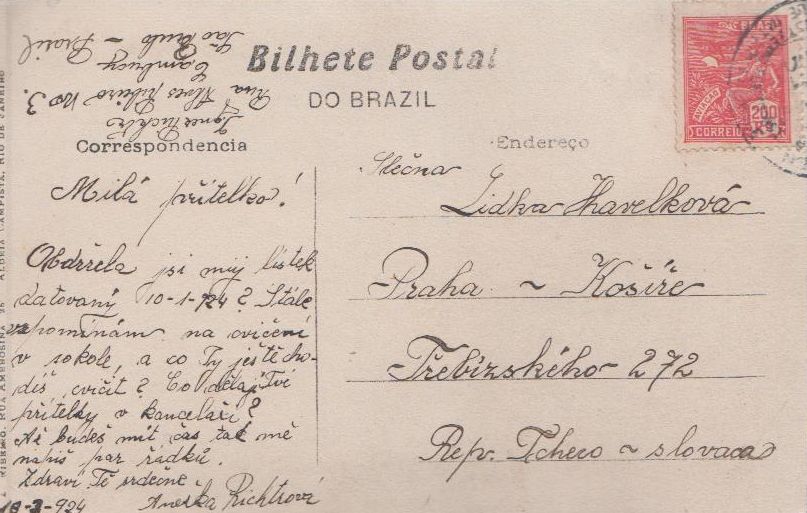 Bilhete Postal
DO BRAZIL
Rua Alves Ribeiro no 3.
Cambucy
São Paulo - Brazil
Correspondencia
Endereço
BRASIL
AVIAÇÃO
200
CORREIO
Milá přítelko!
Obdržela jsi můj lístek
datovaný 10-1-924? Stále
vzpomínám na cvičení
v sokole, a co Ty ještě cho-
díš cvičit? Co dělají Tvé
přítelky v kanceláři?
Až budeš mít čas tak mě
napiš par řádků.
Zdraví Tě srdečně
Anežka Richtrová
924
Slečna
Lidka Havelková
Praha ~ Košíře
Třebízského 272
Rep. Tcheco ~ slovaca
RIBEIRO, RUA AMBROSINA, 25 ALDEIA CAMPISTA, RIO DE JANEIRO